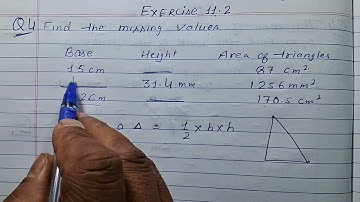 Exercise 11.2
Q4 Find the missing values.
Base Height Area of triangles
15 cm ___ 87 cm²
___ 31.4 mm 1256 mm²
2 cm ___ 170.5 cm²
a Δ = 1/2 × b × h